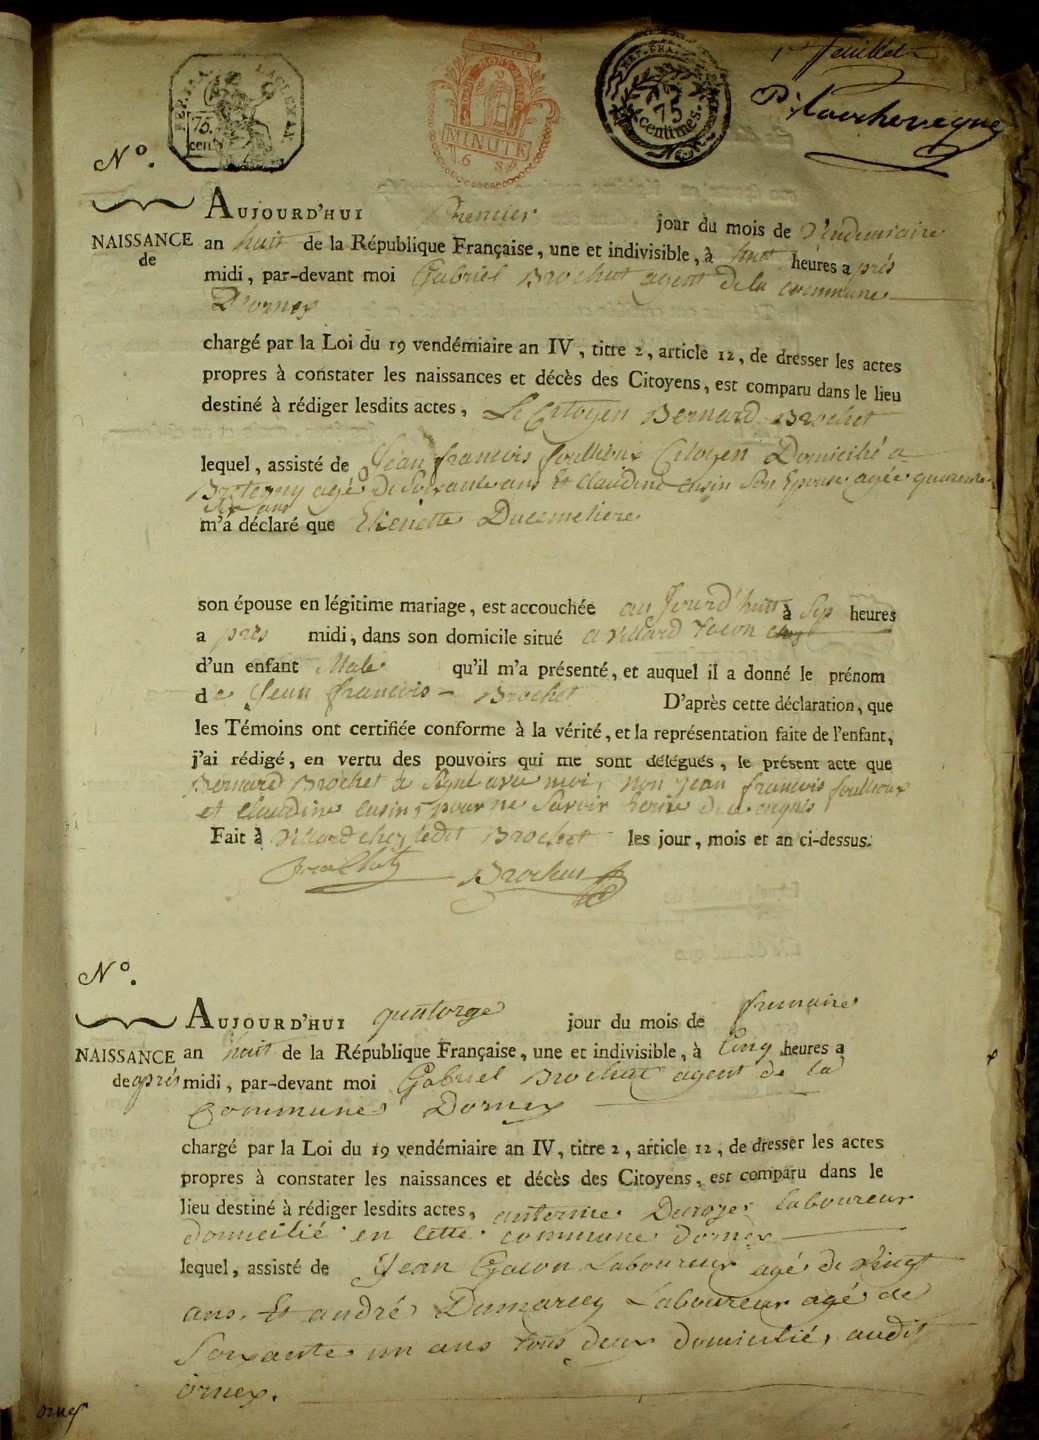 1er feuillet
MINUTE
REP. FRA.
75
centimes.
75.
cent.
N°.
NAISSANCE
de
AUJOURD'HUI Premier jour du mois de Vendemiaire
an huit de la République Française, une et indivisible, à huit heures a prés
midi, par-devant moi Gabriel Brochut agent de la commune
D'ornex
chargé par la Loi du 19 vendémiaire an IV, titre 2, article 12, de dresser les actes
propres à constater les naissances et décès des Citoyens, est comparu dans le lieu
destiné à rédiger lesdits actes, Le Citoyen Bernard Brochet
lequel, assisté de Jean francois foullioux Citoyen Domicilié a
Bretegny agé De Soixante ans Et Claudine cusin Son Epouse agée quarente
Six ans
m'a déclaré que Etienette Ducimetiere
son épouse en légitime mariage, est accouchée au Jourd'huit à Sep heures
a prés midi, dans son domicile situé a villard Tacon
d'un enfant Male qu'il m'a présenté, et auquel il a donné le prénom
de Jean francois - Brochet D'après cette déclaration, que
les Témoins ont certifiée conforme à la vérité, et la représentation faite de l'enfant,
j'ai rédigé, en vertu des pouvoirs qui me sont délégués, le présent acte que
Bernard Brochet a Signé avec moi, non Jean francois foullioux
et Claudine cusin, pour ne Savoir Ecrire de ce enquis
Fait à villard chez ledit Brochet les jour, mois et an ci-dessus.
Brochut
N°.
NAISSANCE
de
AUJOURD'HUI quatorze jour du mois de frimaire
an huit de la République Française, une et indivisible, à Cinq heures a
après midi, par-devant moi Gabriel Brochut agent de la
Commune Dornex
chargé par la Loi du 19 vendémiaire an IV, titre 2, article 12, de dresser les actes
propres à constater les naissances et décès des Citoyens, est comparu dans le
lieu destiné à rédiger lesdits actes, antoine Durozes laboureur
domicilié en cette commune dornex
lequel, assisté de Jean Gacon Laboureur agé de Vingt
ans, Et andré Dumarcey Laboureur agé de
Soixante un ans tous deux domicilié, audit
ornex.
ornex